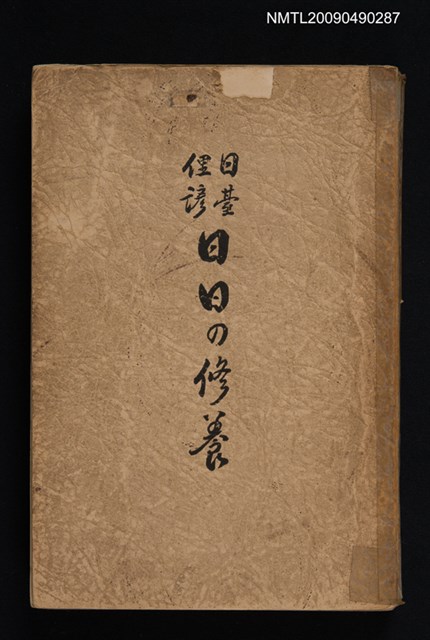 NMTL20090490287
日臺
俚諺
日日の修養